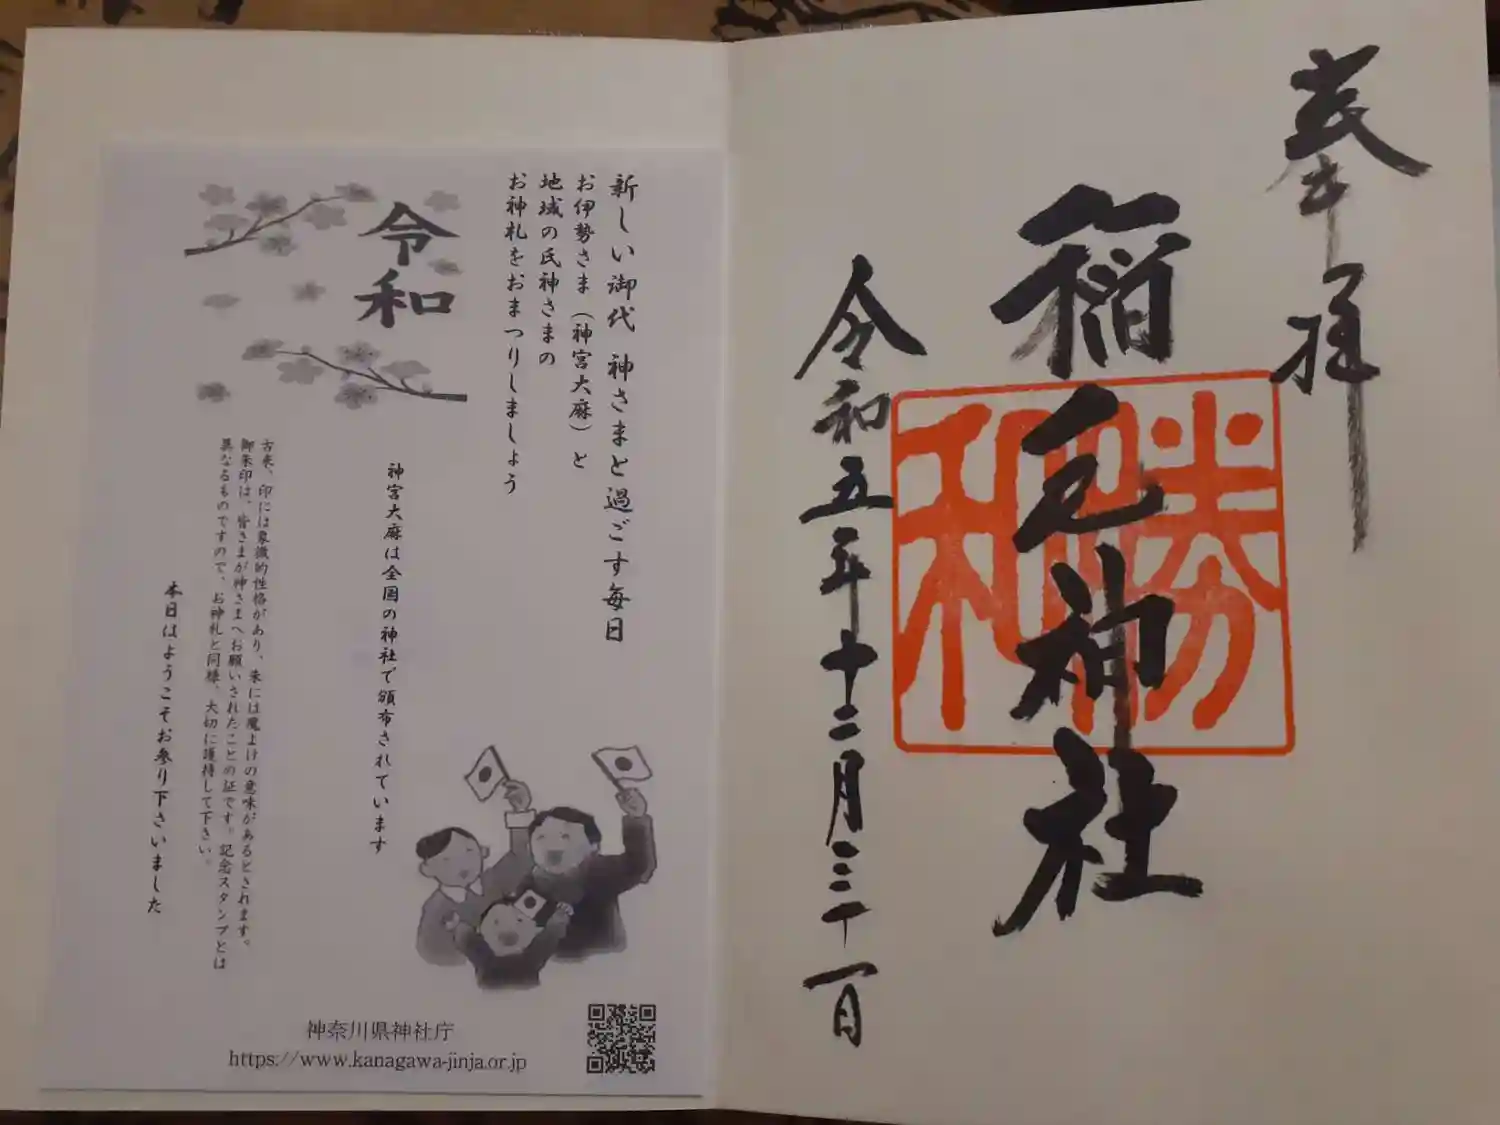 奉拝
稲毛神社
勝和
令和五年十二月三十一日
新しい御代 神さまと過ごす毎日
お伊勢さま（神宮大麻）と
地域の氏神さまの
お神札をおまつりしましょう
令和
神宮大麻は全国の神社で頒布されています
古来、印には象徴的性格があり、朱には魔よけの意味があるとされます。
御朱印は、皆さまが神さまへお願いされたことの証です。記念スタンプとは
異なるものですので、お神札と同様、大切に護持して下さい。
本日はようこそお参り下さいました
神奈川県神社庁
https://www.kanagawa-jinja.or.jp